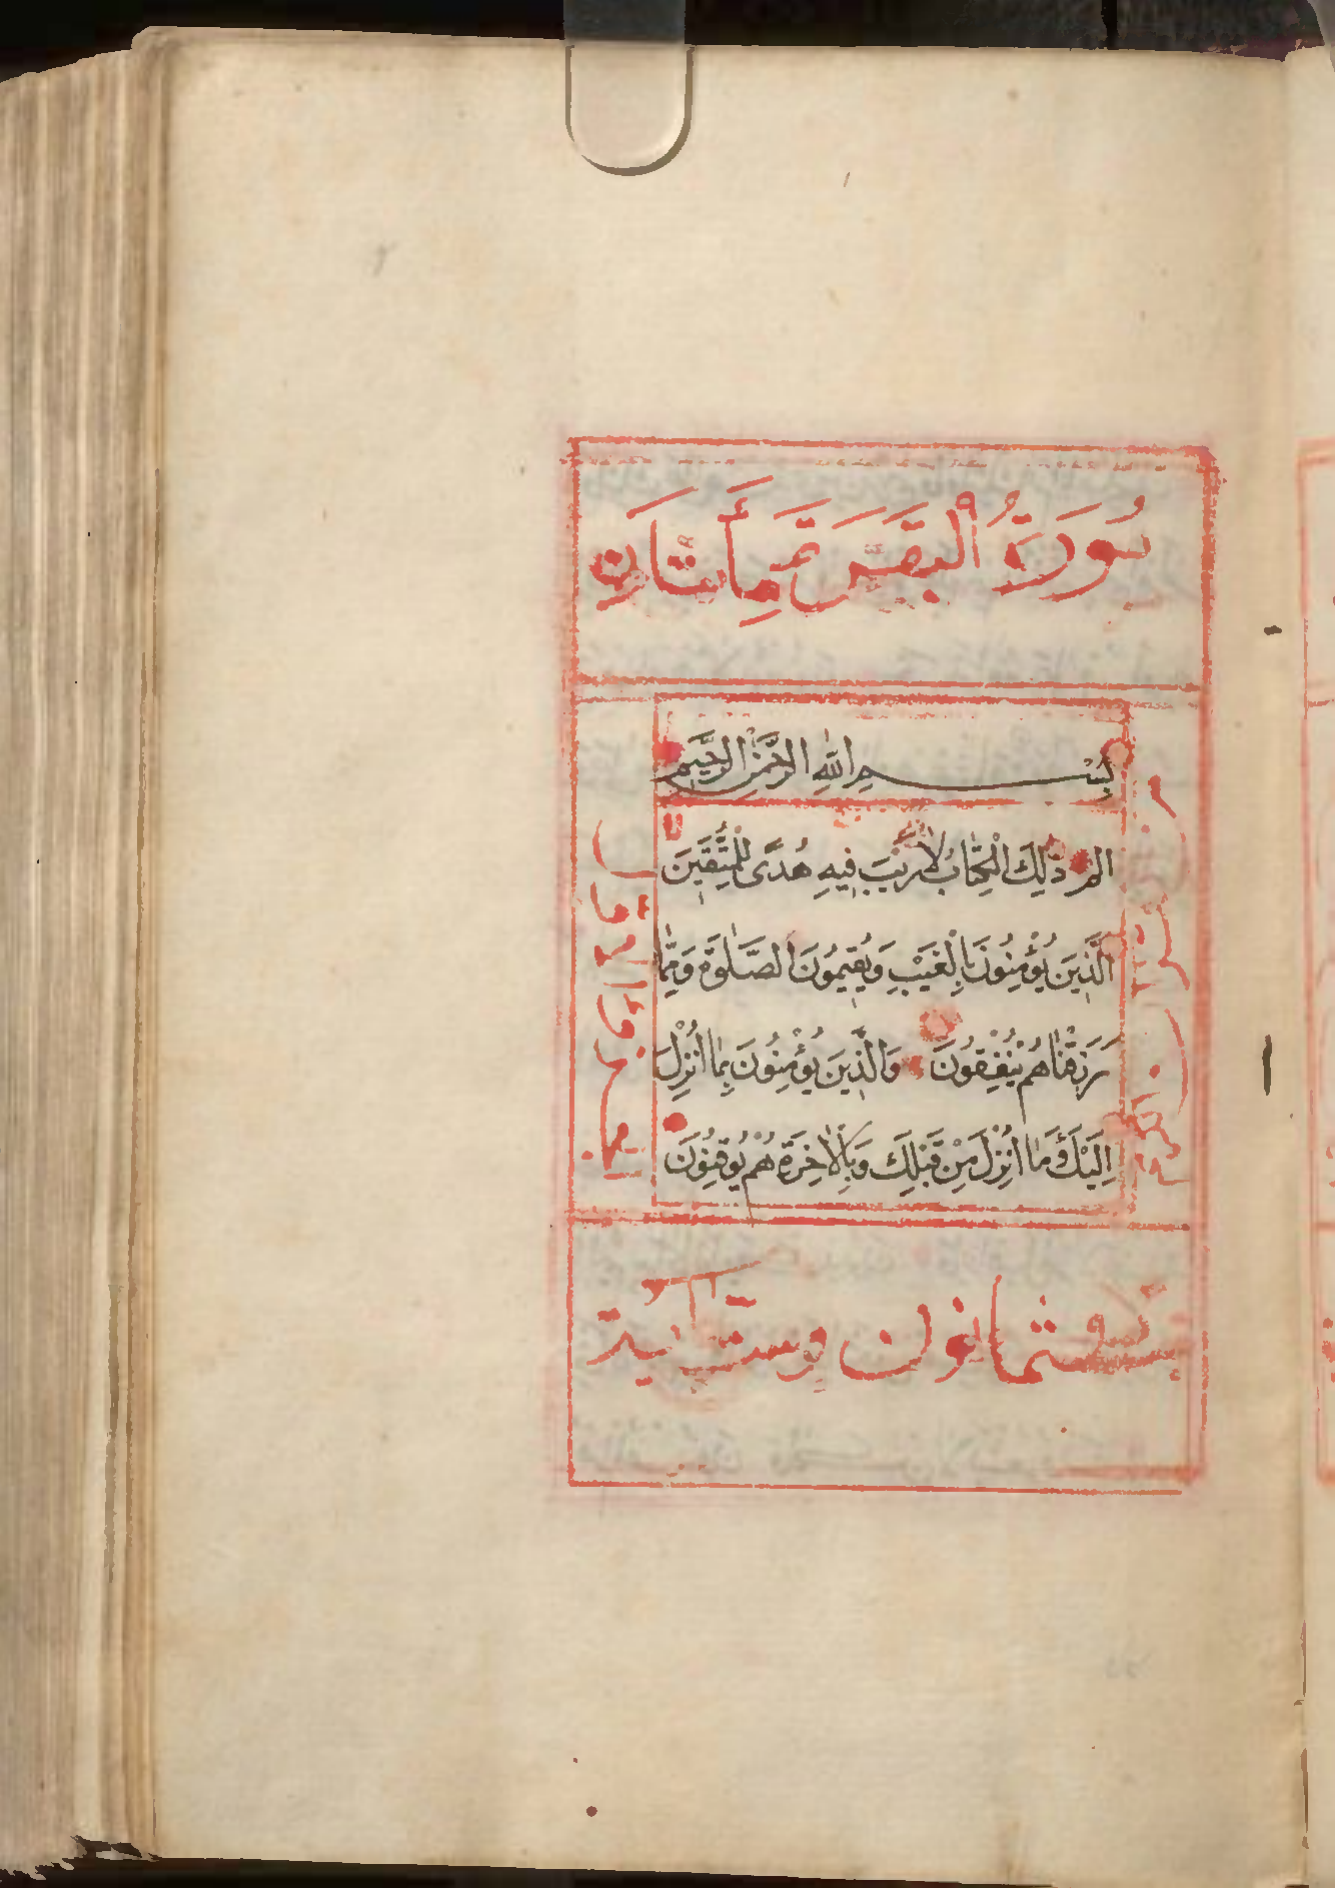 سُورَةُ الْبَقَرَة مِأَتَانِ
بِسْمِ اللَّهِ الرَّحْمَٰنِ الرَّحِيمِ
الم ذَٰلِكَ الْكِتَابُ لَا رَيْبَ فِيهِ هُدًى لِلْمُتَّقِينَ
الَّذِينَ يُؤْمِنُونَ بِالْغَيْبِ وَيُقِيمُونَ الصَّلَوٰةَ وَمِمَّا
رَزَقْنَاهُمْ يُنْفِقُونَ وَالَّذِينَ يُؤْمِنُونَ بِمَا أُنْزِلَ
إِلَيْكَ وَمَا أُنْزِلَ مِنْ قَبْلِكَ وَبِالْآخِرَةِ هُمْ يُوقِنُونَ
وثمانون وست آية